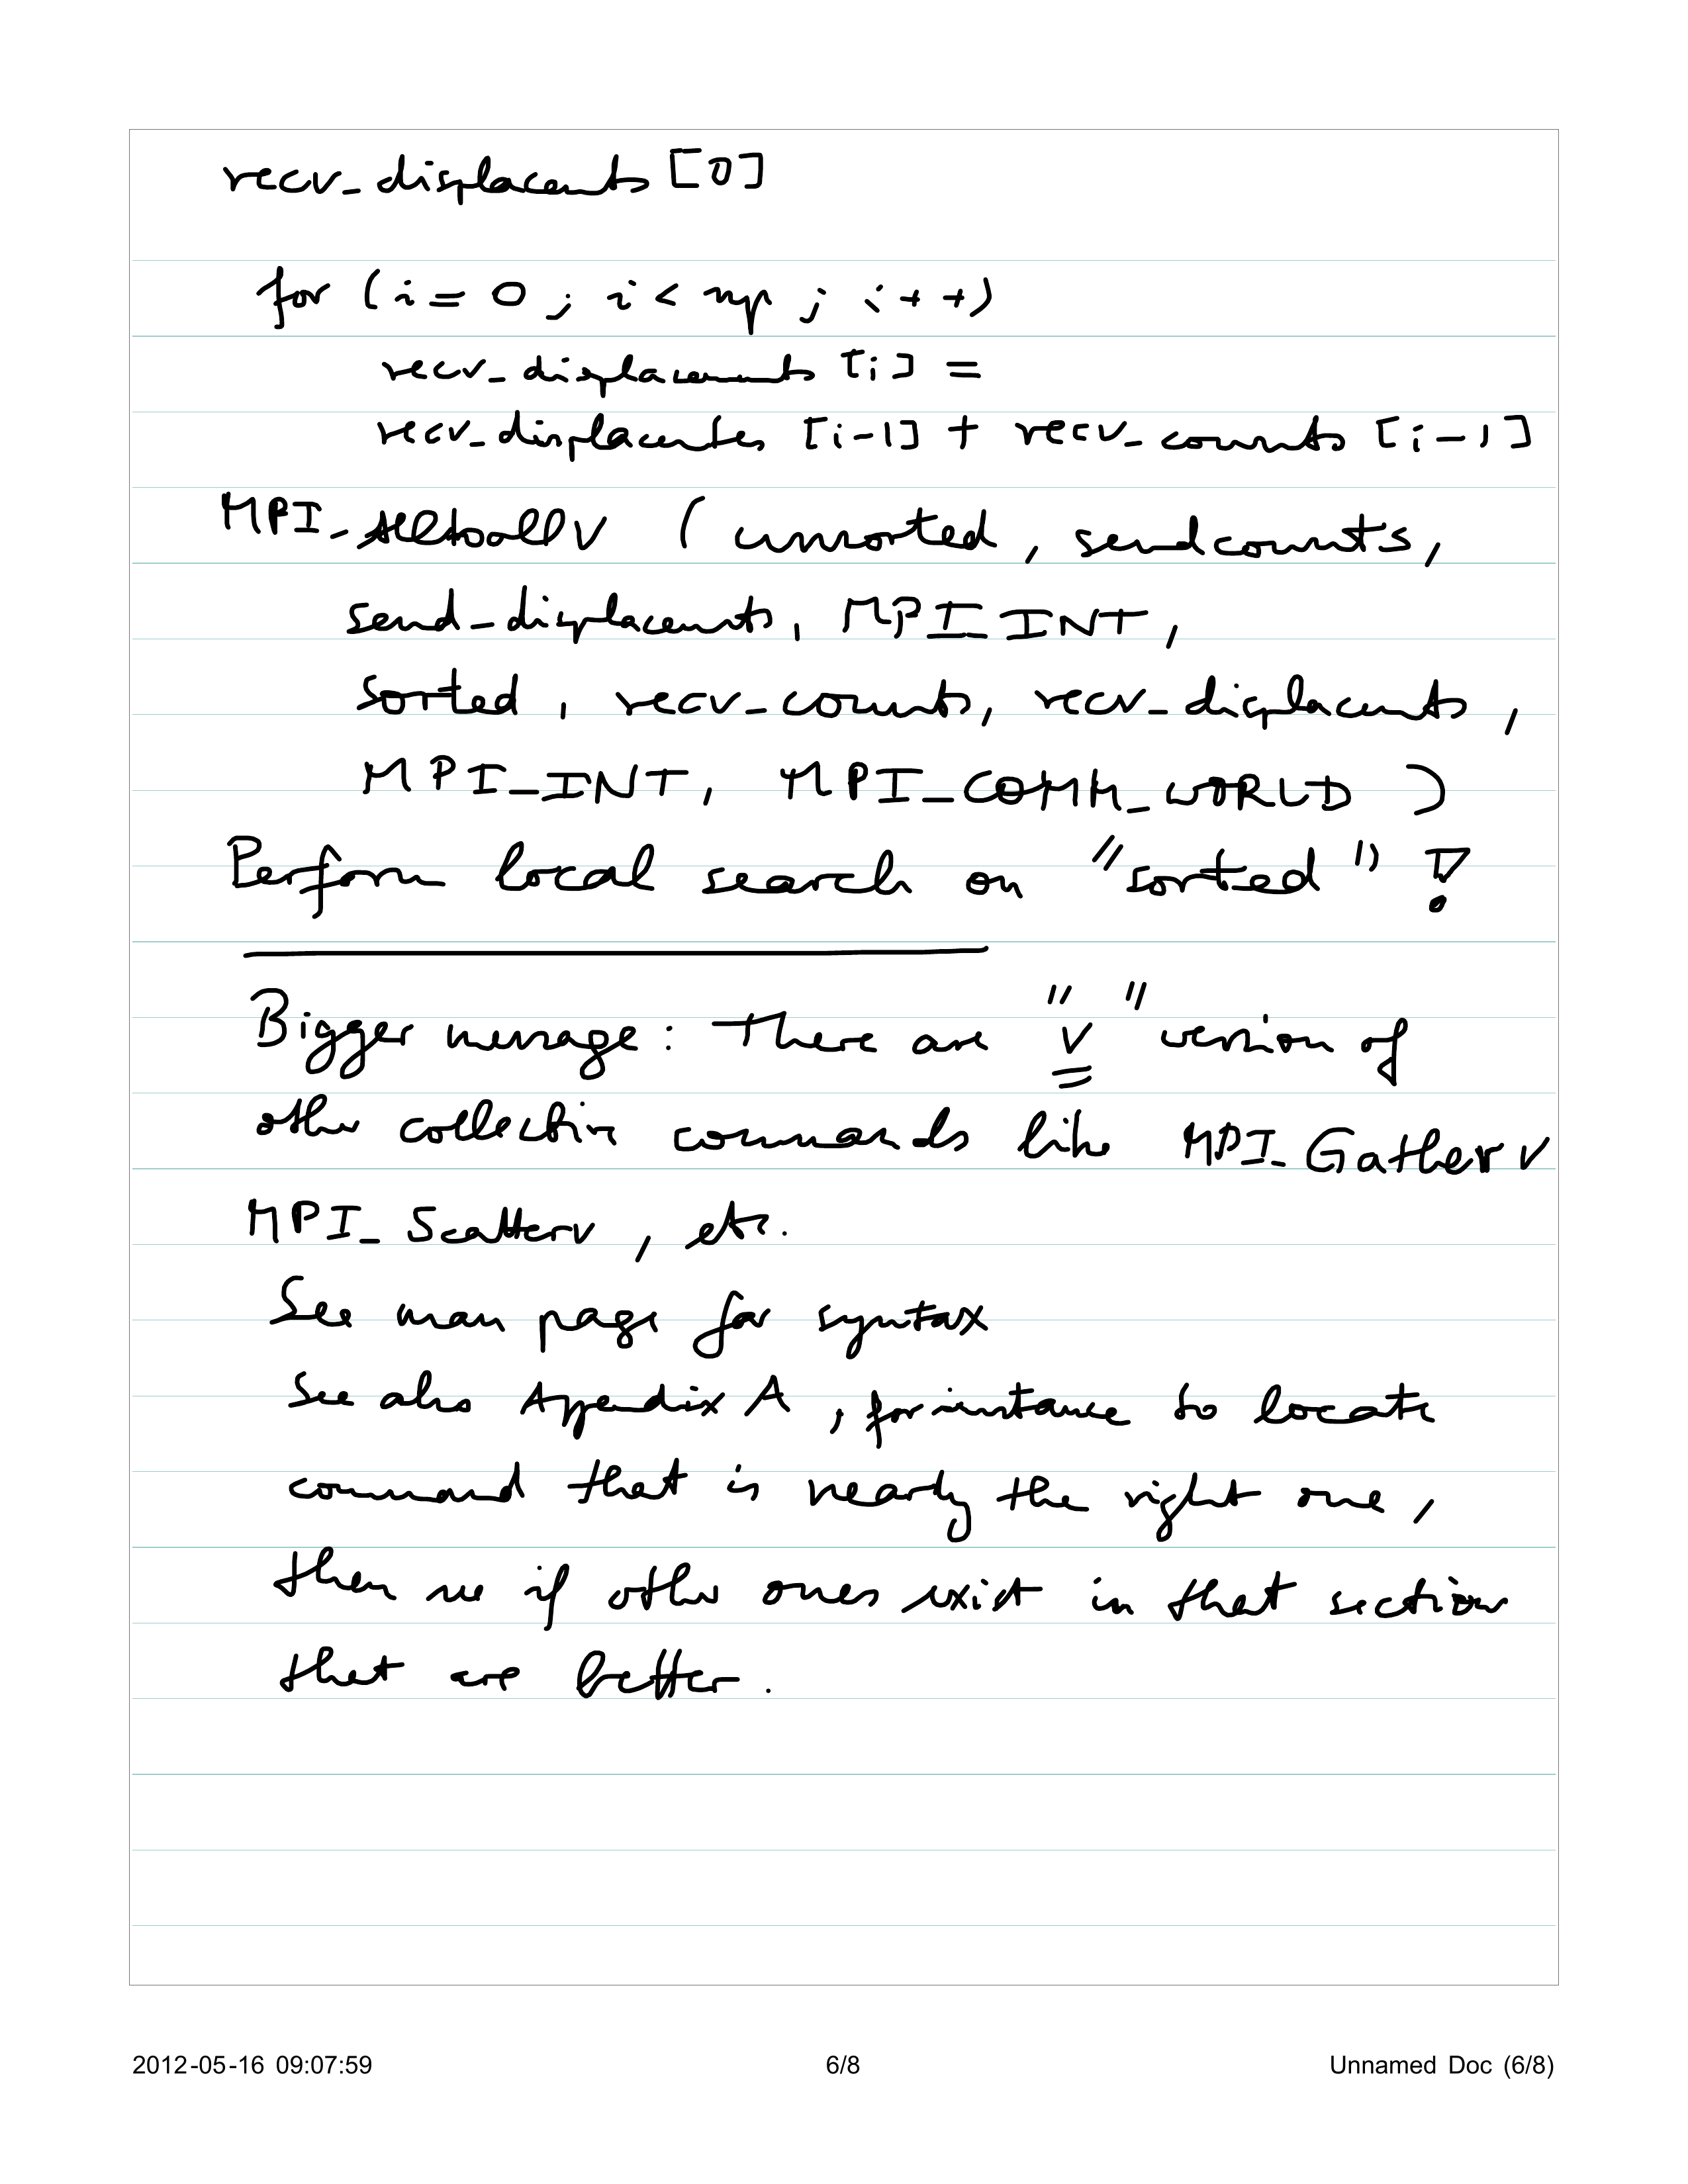 recv_displacents [0]
for (i = 0 ; i < np ; i++)
recv_displacements [i] =
recv_displacentes [i-1] + recv_counts [i-1]
MPI_Alltoallv ( unsorted, sendcounts,
send_displacents, MPI_INT,
sorted, recv_counts, recv_displacents,
MPI_INT, MPI_COMM_WORLD )
Perform local search on "sorted" !
Bigger message: There are "v" version of
other collective commands like MPI_Gatherv
MPI_Scatterv, etc.
See man page for syntax
See also Appendix A, for instance to locate
command that is nearly the right one,
then see if other ones exist in that section
that are better.
2012-05-16 09:07:59 6/8 Unnamed Doc (6/8)